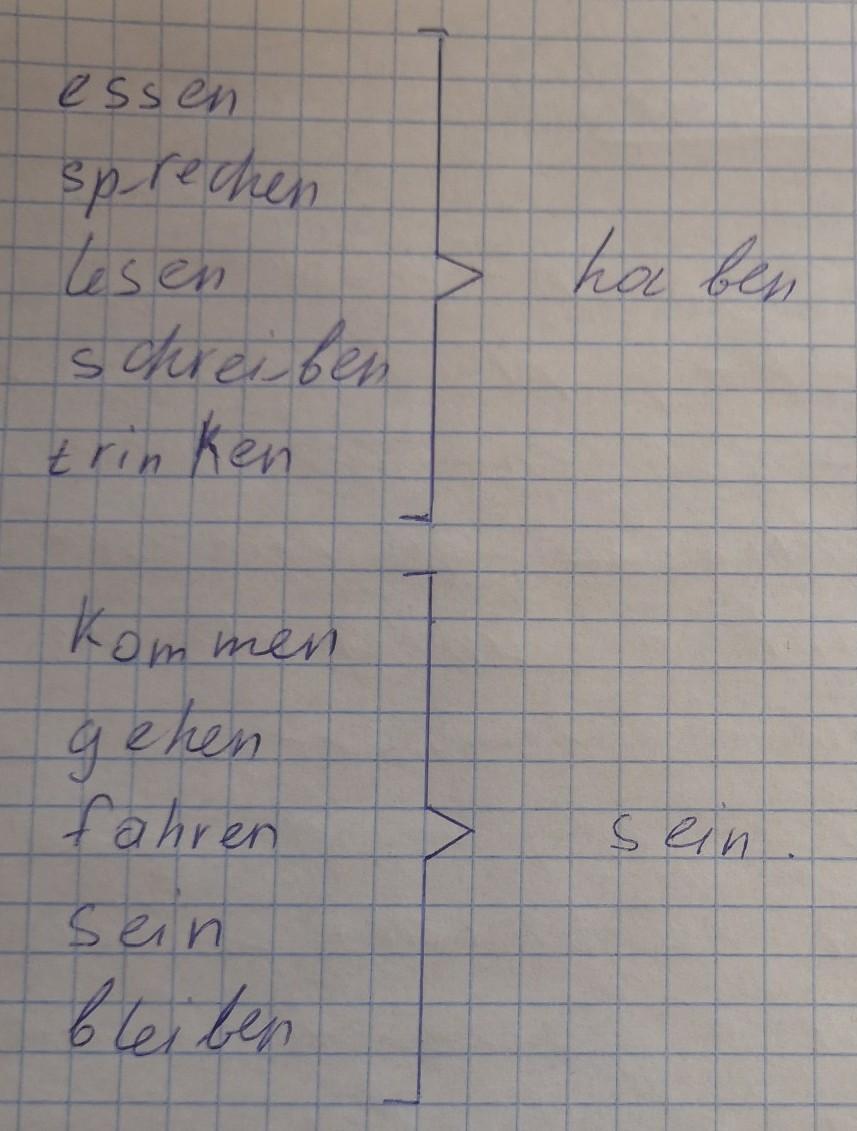 essen
sprechen
lesen
haben
schreiben
trinken
kommen
gehen
fahren
sein.
sein
bleiben